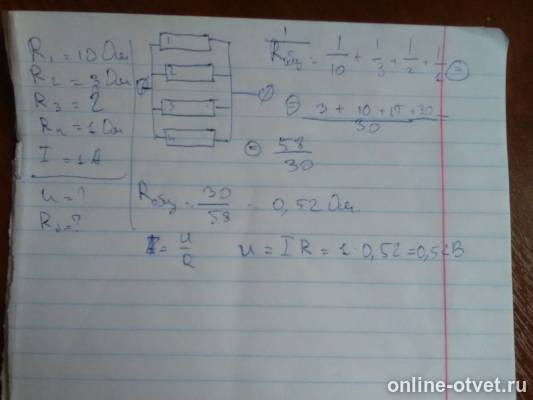 R₁ = 10 Ом
R₂ = 3 Ом
R₃ = 2
R₄ = 1 Ом
I = 1А
u = ?
R₀ = ?
1
2
3
4
1/Rобщ = 1/10 + 1/3 + 1/2 + 1/1 =
= (3 + 10 + 15 + 30)/30 =
= 58/30
Rобщ = 30/58 = 0,52 Ом
I = u/R u = IR = 1 · 0,52 = 0,52 В
online-otvet.ru